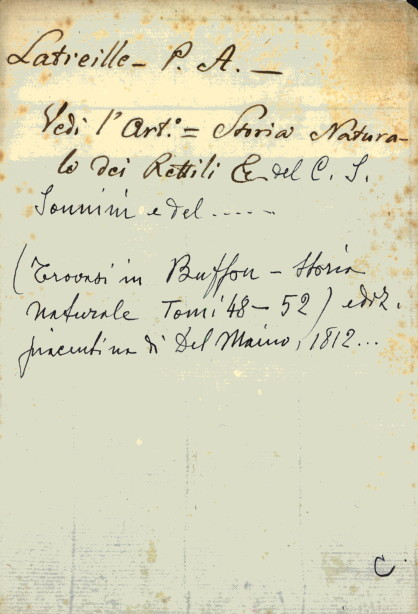 Latreille - P. A. -
Vedi l'Art.º = Storia Natura-
le dei Rettili & del C. S.
Sonnini e del .....
(Trovasi in Buffon - Storia
naturale Tomi 48 - 52) ediz.
piacentina di Del Maino, 1812...
C